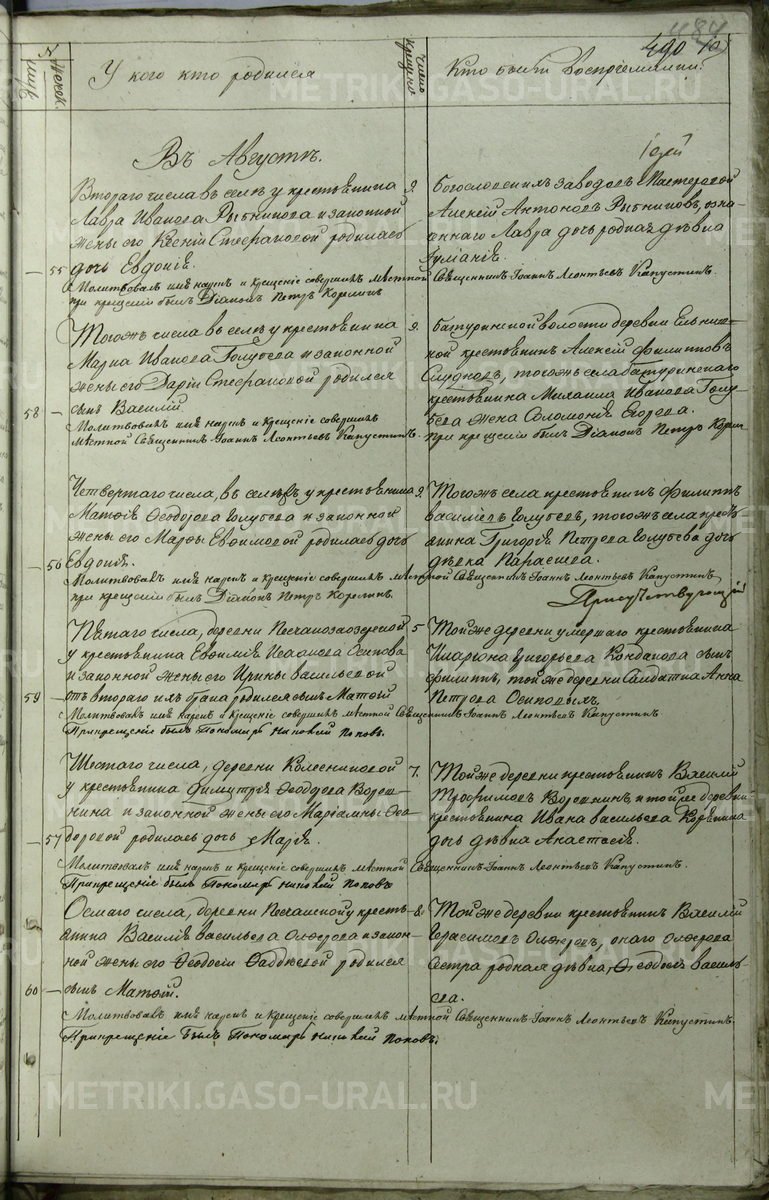 490
У кого кто родился
число крещенiя
Кто были Воспрiемники.
Въ Августѣ.
Втораго числа въ селѣ у крестьянина
Лавра Иванова Рыбникова и законной
жены его Ксенiи Стефановой родилась
55 дочь Евдокiя.
Молитвовалъ имя нарекъ и крещенiе совершилъ мѣстной Священникъ Iоаннъ Леонтьевъ Капустинъ.
при крещенiи былъ Дiаконъ Петръ Корелинъ
9.
Богословскихъ заводовъ Мастеровой
Алексѣй Антоновъ Рыбниковъ, озна-
ченнаго Лавра дочь родная дѣвка
Iулiанiя.
Тогожъ числа въ селѣ у крестьянина
Марка Иванова Голубева и законной
жены его Дарiи Стефановой родился
58 сынъ Василiй
Молитвовалъ имя нарекъ и крещенiе совершилъ
мѣстной Священникъ Iоаннъ Леонтьевъ Капустинъ.
9.
Батуринской волости деревни
крестьянинъ Алексѣй Филипповъ
тогожъ села Батуринскаго
крестьянина Михаила Иванова Голу-
бева жена Соломонiя Егорова.
При крещенiи былъ Дiаконъ Петръ Корелинъ
Четвертаго числа, въ селѣ у крестьянина
Матѳiя Ѳеодорова Голубева и законной
жены его Марѳы Евѳимовой родилась дочь
56 Евдокiя.
Молитвовалъ имя нарекъ и крещенiе совершилъ мѣстной Священникъ Iоаннъ Леонтьевъ Капустинъ
при крещенiи былъ Дiаконъ Петръ Корелинъ.
9.
Тогожъ села крестьянинъ Филиппъ
Васильевъ Голубевъ, тогожъ села кресть-
янина Григорiя Петрова Голубева дочь
дѣвка Параскева.
Присутствующiй
Пятаго числа, деревни Песчаноозерской
у крестьянина Евѳимiя Исакова Осипова
и законной жены его Ирины Васильевой
отъ втораго ихъ брака родился сынъ Матѳiй
59 Молитвовалъ имя нарекъ и крещенiе совершилъ мѣстной Священникъ Iоаннъ Леонтьевъ Капустинъ
При крещенiе былъ Пономарь Поповъ.
5
Той же деревни умершаго крестьянина
Иларiона Григорьева Кондакова сынъ
Филиппъ, той же деревни Солдатка Анна
Петрова Осиповыхъ.
Шестаго числа, деревни Колесниковой
у крестьянина Димитрiя Ѳеодорова Ворош-
нина и законной жены его Марiамны Ѳео-
57 доровой родилась дочь Марiя.
Молитвовалъ имя нарекъ и крещенiе совершилъ мѣстной Священникъ Iоаннъ Леонтьевъ Капустинъ.
При крещенiе былъ Пономарь Поповъ
7.
Той же деревни крестьянинъ Василiй
Трофимовъ Ворошнинъ, и той же деревни
крестьянина Ивана Васильева
дочь дѣвка Анастасiя.
Осмаго числа, деревни Песчанской у кресть-
янина Василiя Васильева и закон-
ной жены его Ѳеодосiи Ѳаддѣевой родился
60 сынъ Матѳiй.
Молитвовалъ имя нарекъ и крещенiе совершилъ мѣстной Священникъ Iоаннъ Леонтьевъ Капустинъ.
При крещенiе былъ Пономарь Поповъ.
8.
Той же деревни крестьянинъ Василiй
Герасимовъ онаго
Сестра родная дѣвка, Ѳеодосья Василь-
ева.
METRIKI.GASO-URAL.RU